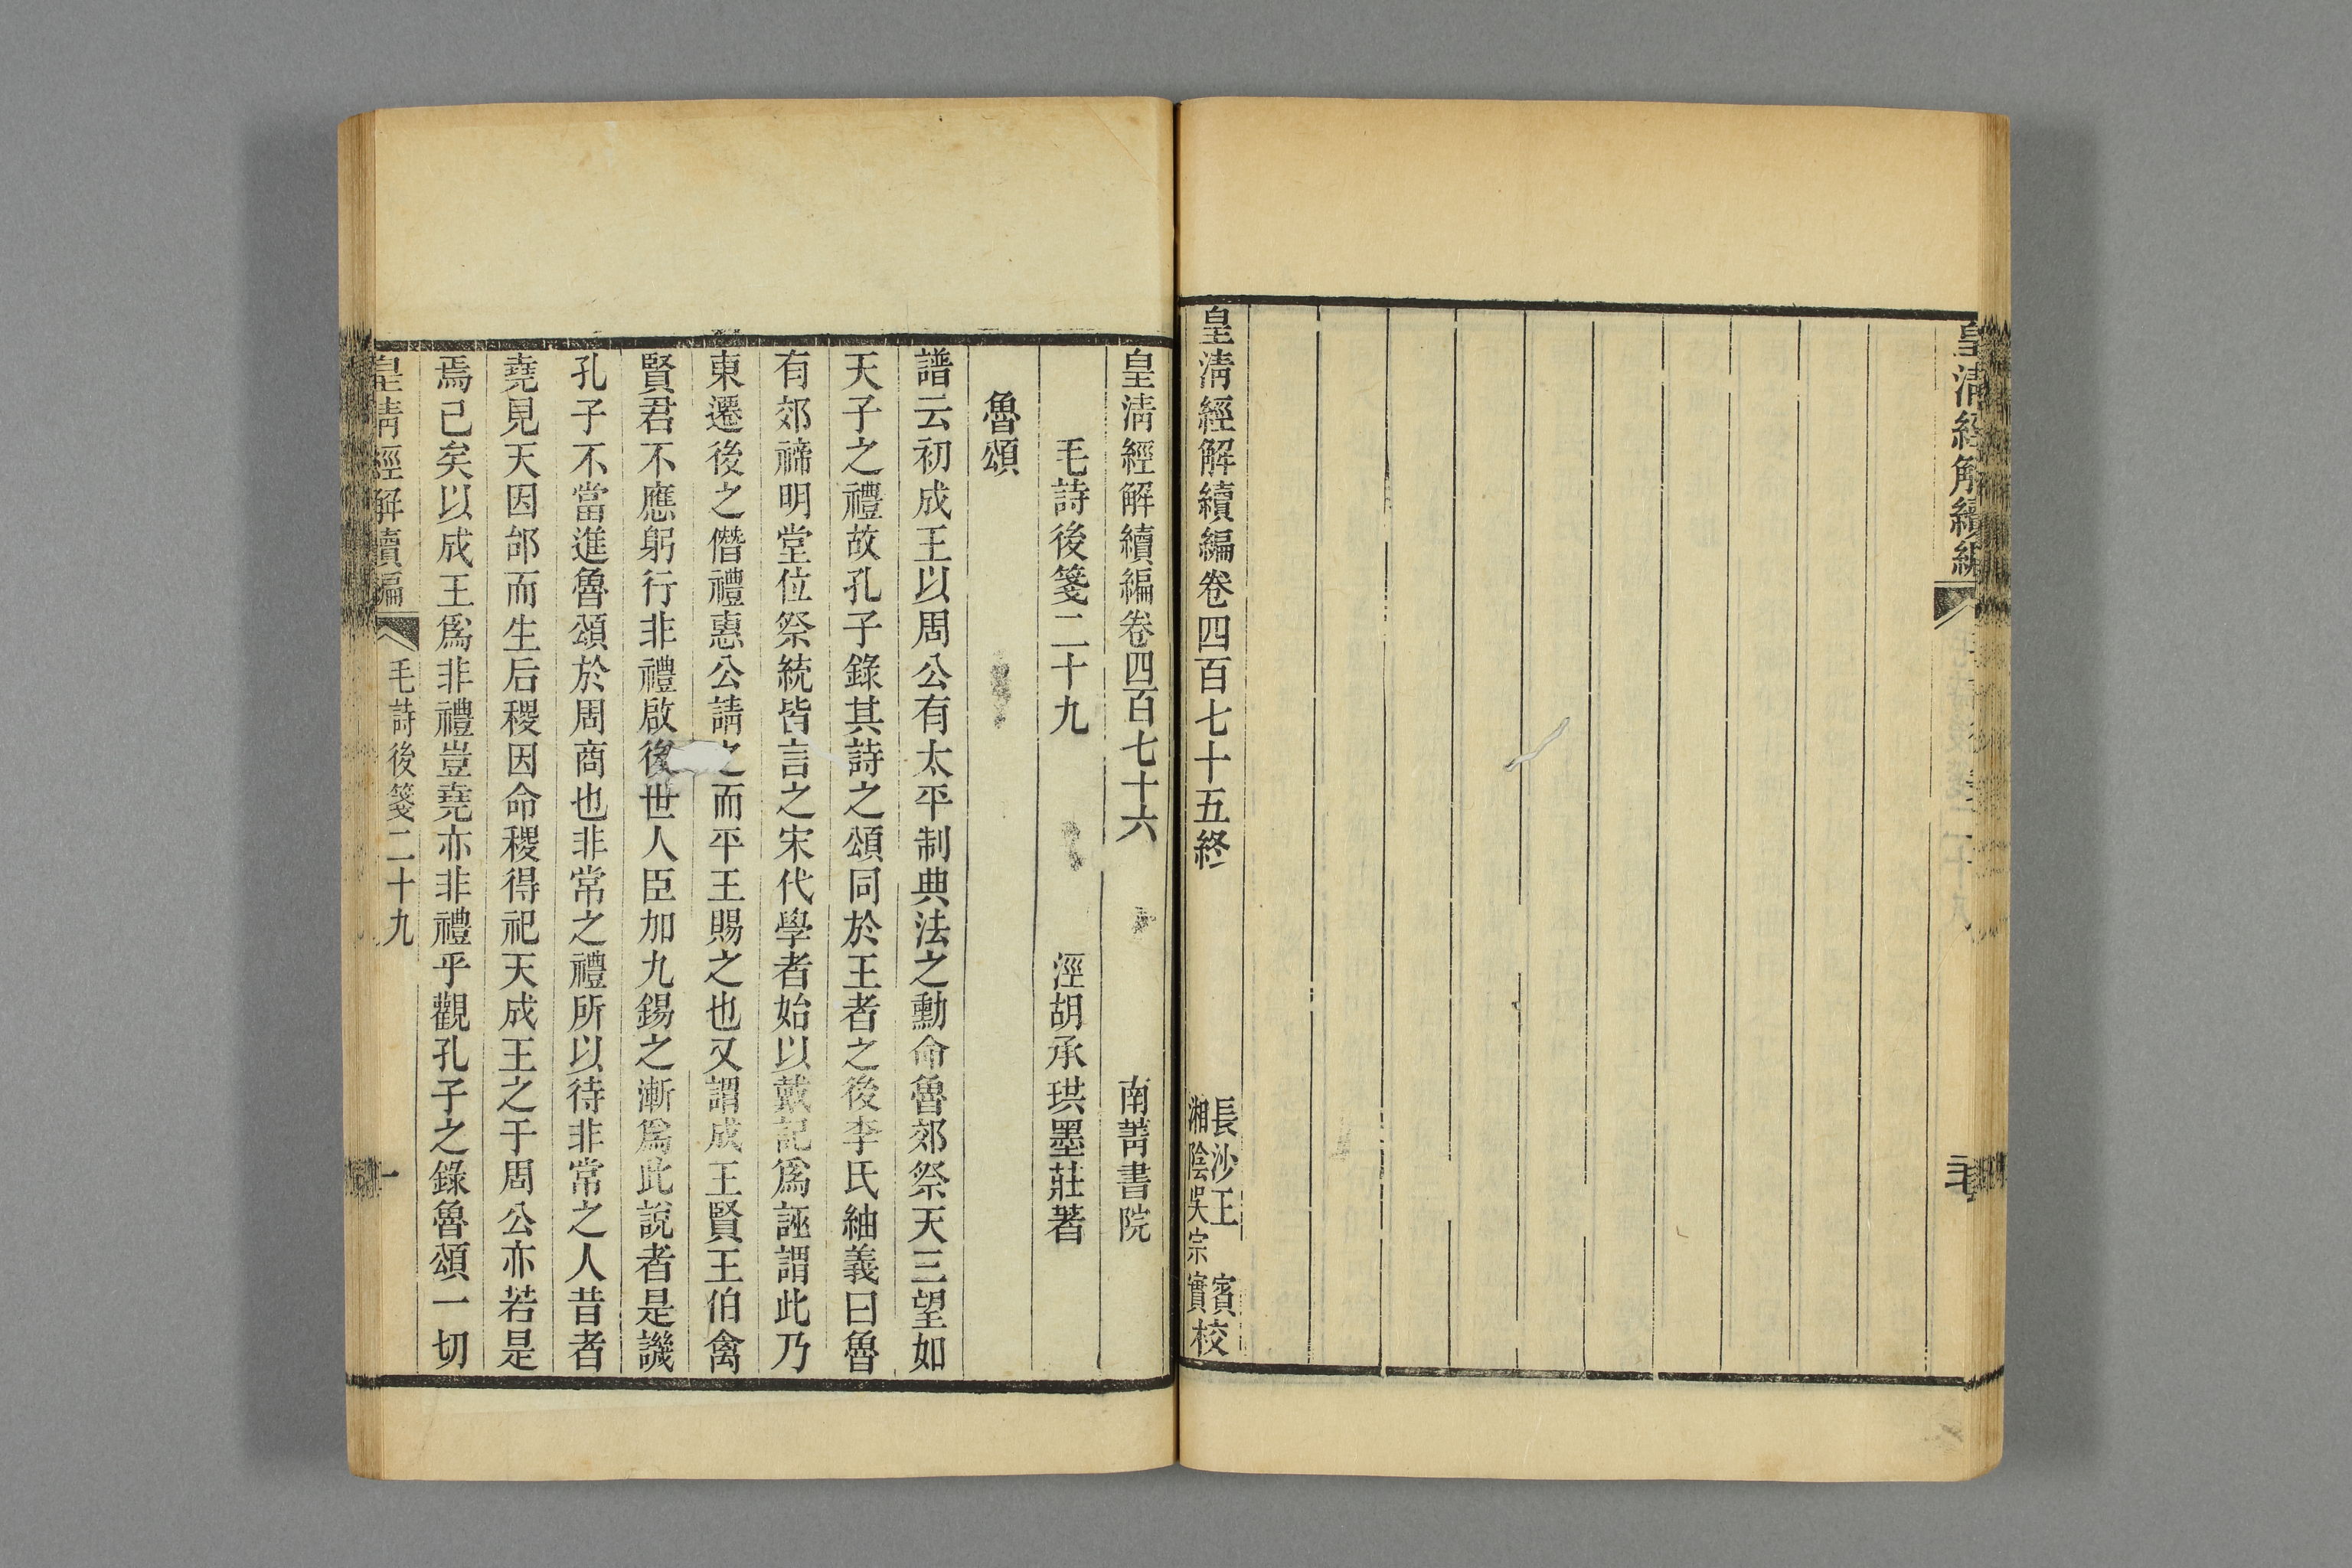 皇清經解續編
皇清經解續編卷四百七十五終
長沙王賓
湘陰吳宗實校
皇清經解續編卷四百七十六
南菁書院
毛詩後箋二十九
涇胡承珙墨莊著
魯頌
譜云初成王以周公有太平制典法之勳命魯郊祭天三望如
天子之禮故孔子錄其詩之頌同於王者之後李氏紬義曰魯
有郊禘明堂位祭統皆言之宋代學者始以戴記爲誣謂此乃
東遷後之僭禮惠公請之而平王賜之也又謂成王賢王伯禽
賢君不應躬行非禮啟後世人臣加九錫之漸爲此說者是譏
孔子不當進魯頌於周商也非常之禮所以待非常之人昔者
堯見天因邰而生后稷因命稷得祀天成王之于周公亦若是
焉已矣以成王爲非禮豈堯亦非禮乎觀孔子之錄魯頌一切
皇清經解續編
毛詩後箋二十九
一